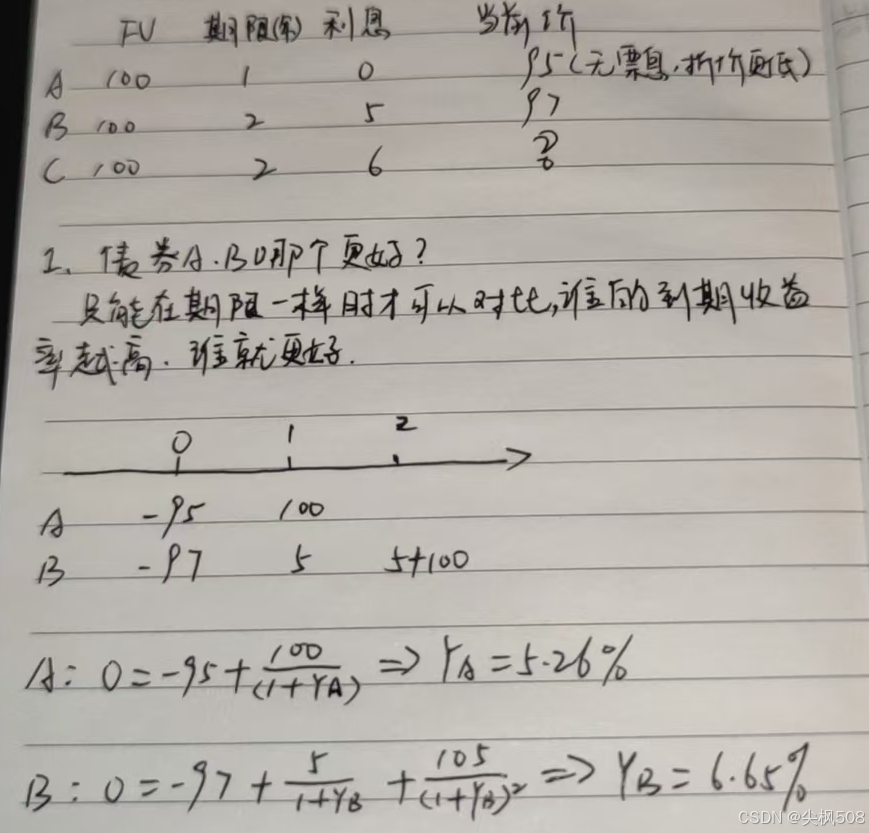 FV 期限(年) 利息 当前价
A 100 1 0 95(无票息,折价更低)
B 100 2 5 97
C 100 2 6 ?
1、债券A.B哪个更好?
只能在期限一样时才可以对比,谁的到期收益
率越高.谁就更好.
0 1 2
A -95 100
B -97 5 5+100
A: 0=-95+100/(1+YA) => YA=5.26%
B: 0=-97+5/(1+YB)+105/(1+YB)² => YB=6.65%
CSDN @尖枫508